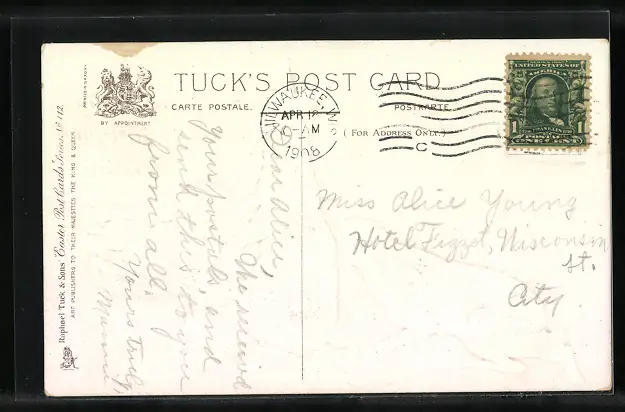 TUCK'S POST CARD
CARTE POSTALE.
POSTKARTE
( FOR ADDRESS ONLY. )
BY APPOINTMENT
Raphael Tuck & Sons' "Easter" Post Cards Series No 112.
ART PUBLISHERS TO THEIR MAJESTIES THE KING & QUEEN
MILWAUKEE, WIS
APR 18
-AM
1908
C
UNITED STATES OF
AMERICA
1 FRANKLIN 1
POSTAGE
ONE CENT
Dear Alice,
We received
your postals, and
send this to you
from all,
Yours truly
Miss Alice Young
Hotel Fizzet, Wisconsin
St.
City.